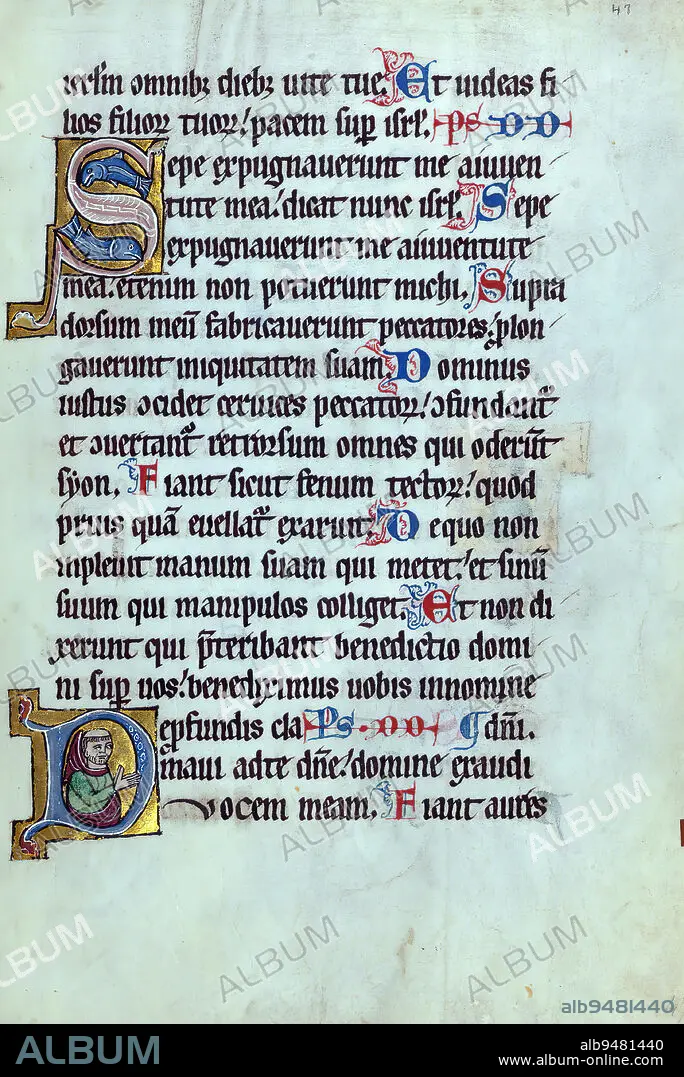 47
irl'm omnibꝫ diebꝫ uite tue. Et uideas fi
lios filioꝝ tuoꝝ: pacem suꝑ isrl. ps DD
Sepe expugnauerunt me aiuuen
tute mea: dicat nunc isrl. Sepe
expugnauerunt me aiuuentute
mea: etenim non potuerunt michi. Supra
dorsum meũ fabricauerunt peccatores: ꝓlon
gauerunt iniquitatem suam. Dominus
iustus ↄcidet ceruices peccatoꝝ: ↄfundant᷑
et ↄuertant᷑ retrorsum omnes qui oderũt
syon. Fiant sicut fenum tectoꝝ: quod
prius quã euellat᷑ exaruit. De quo non
inpleuit manum suam qui metet: et sinũ
suum qui manipulos colliget. Et non di
xerunt qui p̃teribant benedictio domi
ni suꝑ uos: benediximus uobis innomine
Deꝓfundis cla Ps. DD dñi.
maui adte dñe: domine exaudi
uocem meam. Fiant aures
ALBUM
alb9481440
ALBUM
alb9481440
www.album-online.com